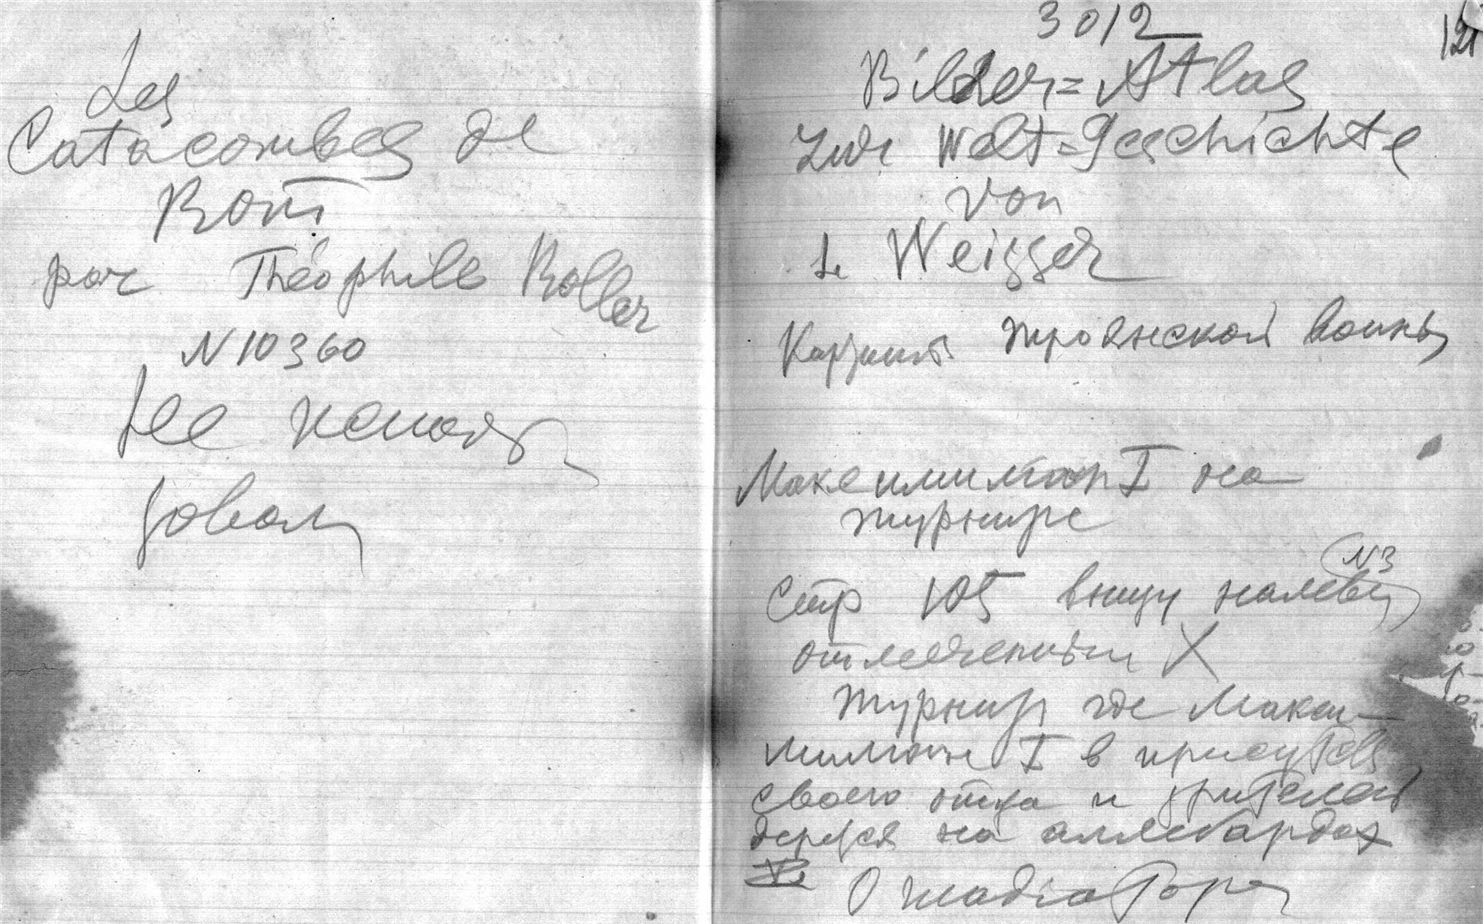 Les
Catacombes de
Rom
par Théophile Roller
N 10360
3012
121
Bilder=Atlas
zur Welt=Geschichte
von
L Weisser
Картины троянской войны
Максимилиан I на
турнире
N3
стр 105 внизу налево
отмеченный X
Турнир где Макси-
милиан I в присутст
своего отца и зрителей
дерется на аллебардах
О гладиаторах